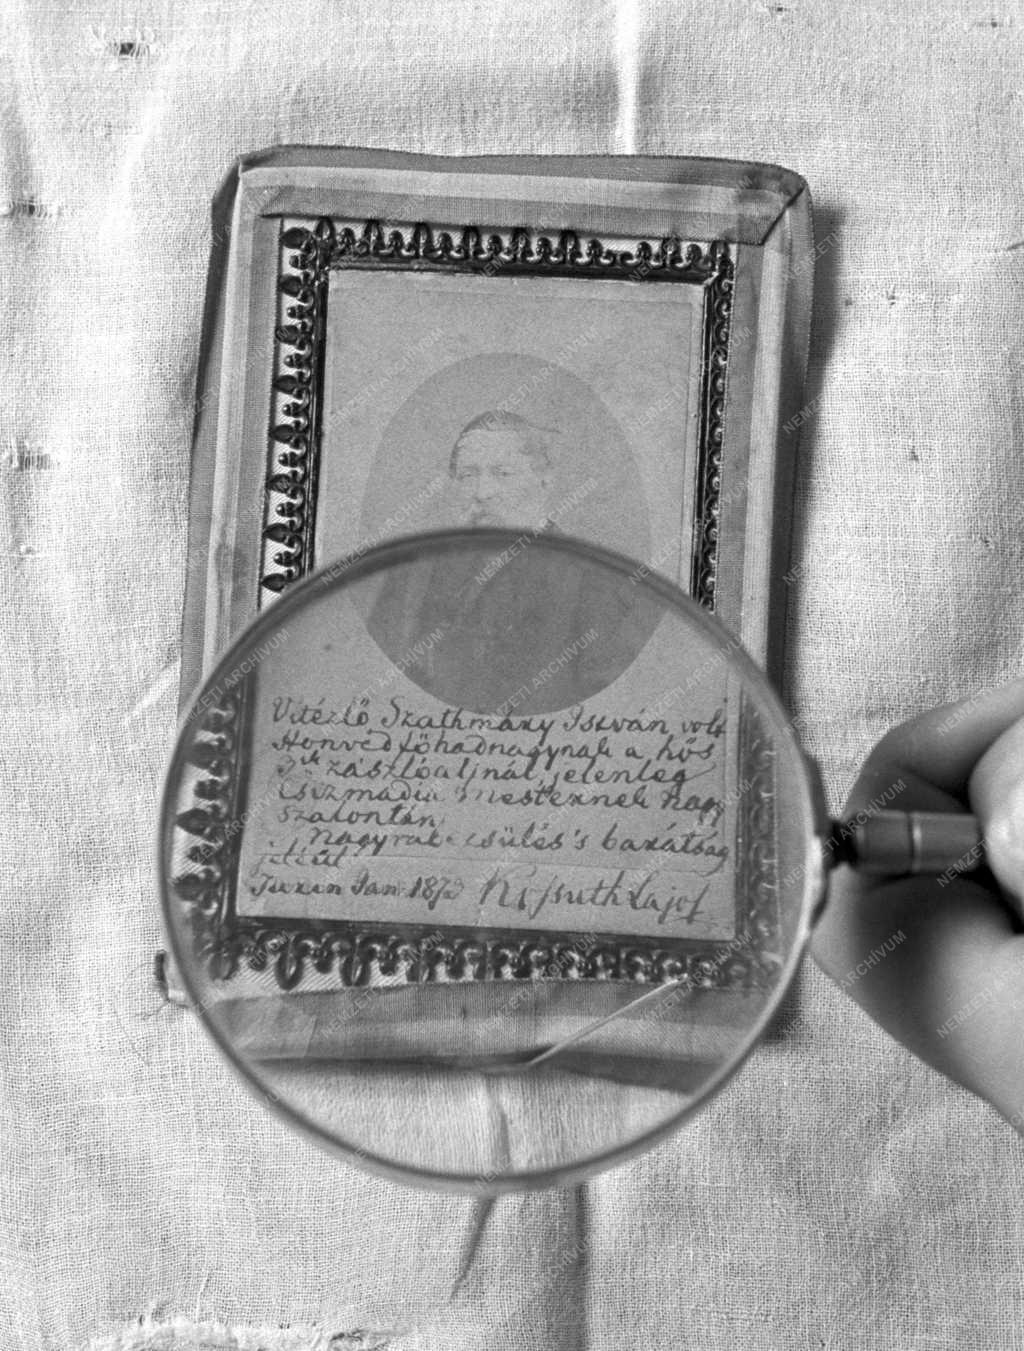 Vitézlő Szathmáry István volt
Honvéd főhadnagynak a hős
3ik zászlóaljnál, jelenleg
Csizmadia mesternek Nagy
Szalontán,
Nagyrabecsülés 's barátság
jeléül
Turin Jan. 1873 Kossuth Lajos
NEMZETI ARCHIVUM